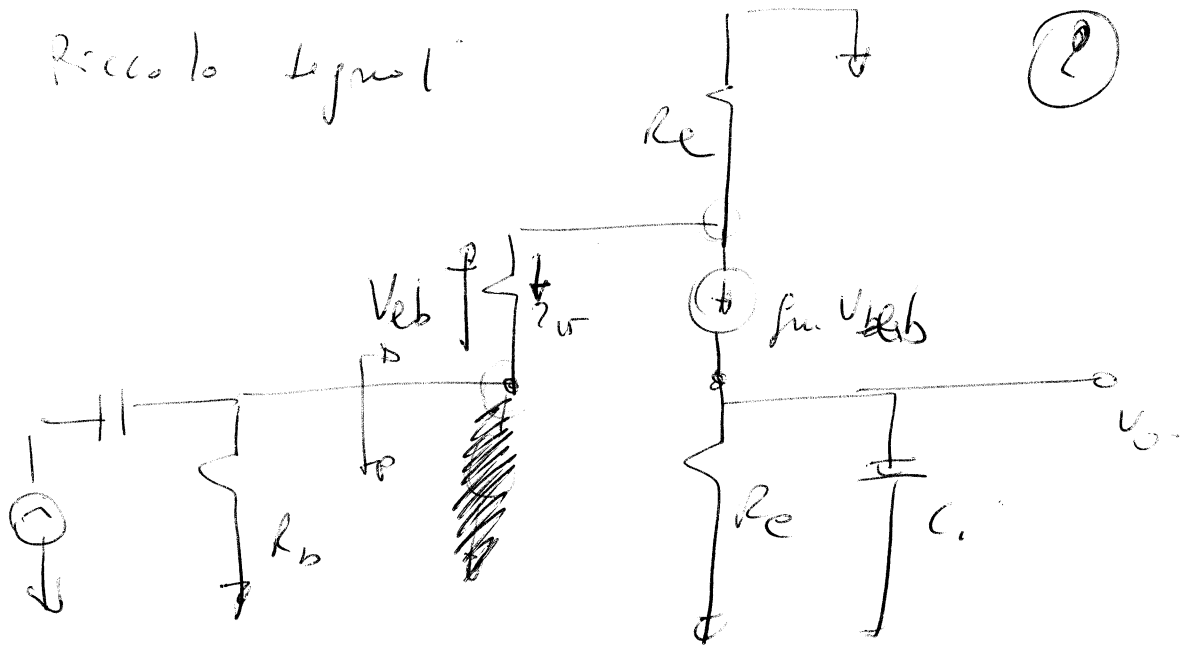 Piccolo segnal
2
Re
Veb
rπ
gm Veb
Vo
Rb
Rc
C1